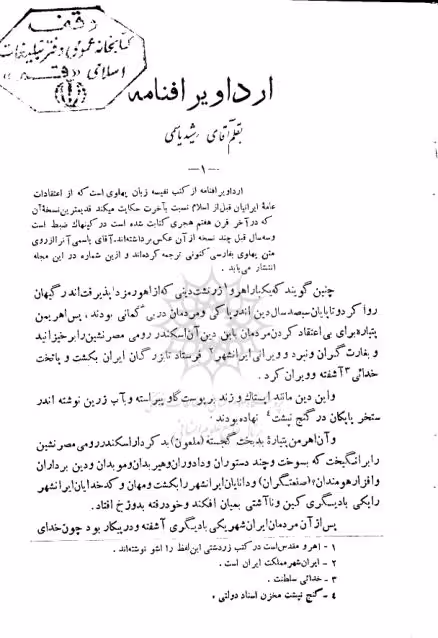 وقف
کتابخانه عمومی دفتر تبلیغات
اسلامی «قم»
ارداویرافنامه
بقلم آقای رشید یاسمی
—۱—
ارداویرافنامه از کتب نفیسه زبان پهلوی است که از اعتقادات
عامهٔ ایرانیان قبل از اسلام نسبت بآخرت حکایت میکند قدیمترین نسخهٔ آن
که در آخر قرن هفتم هجری کتابت شده است در کپنهاك ضبط است
وسه سال قبل چند نسخه از آن عکس برداشته‌اند. آقای یاسمی آنرا از روی
متن پهلوی بفارسی کنونی ترجمه کرده‌اند و از این شماره در این مجله
انتشار می‌یابد .
چنین گویند که یکبار اهرو۱ زرتشت دینی که از اهورمزد پذیرفت اندر گیهان
روا کرد و تا پایان سیصد سال دین اندر پاکی و مردمان در بی گمانی بودند ، پس اهریمن
پتیاره برای بی اعتقاد کردن مردمان باین دین آن اسکندر رومی مصر نشین را بر خیزانید
و بغارت گران و نبرد و ویرانی ایرانشهر۲ فرستاد تا بزرگان ایران بکشت و پایتخت
خدائی۳ آشفته و ویران کرد .
و این دین مانند اپستاك و زند بر پوست گاو پیراسته و بآب زرین نوشته اندر
ستخر پاپکان در گنج نپشت۴ نهاده بودند
و آن اهرمن پتیارهٔ بدبخت گجسته (ملعون) بد کردار اسکندر رومی مصر نشین
را برانگیخت که بسوخت و چند دستوران و داوران و هیربدان و موبدان و دین برداران
و افزار هومندان (صنعتگران) و دانایان ایرانشهر را بکشت و مهان و کدخدایان ایرانشهر
را یکی با دیگری کین و ناآشتی بمیان افکند و خود رفته بدوزخ افتاد.
پس از آن مردمان ایران شهر یکی با دیگری آشفته و در پیکار بود چون خدای
۱ - اهرو مقدس است در کتب زردشتی این لفظ را اشو نوشته‌اند .
۲ - ایران شهر مملکت ایران است .
۳ - خدائی سلطنت .
۴ - گنج نپشت مخزن اسناد دولتی .